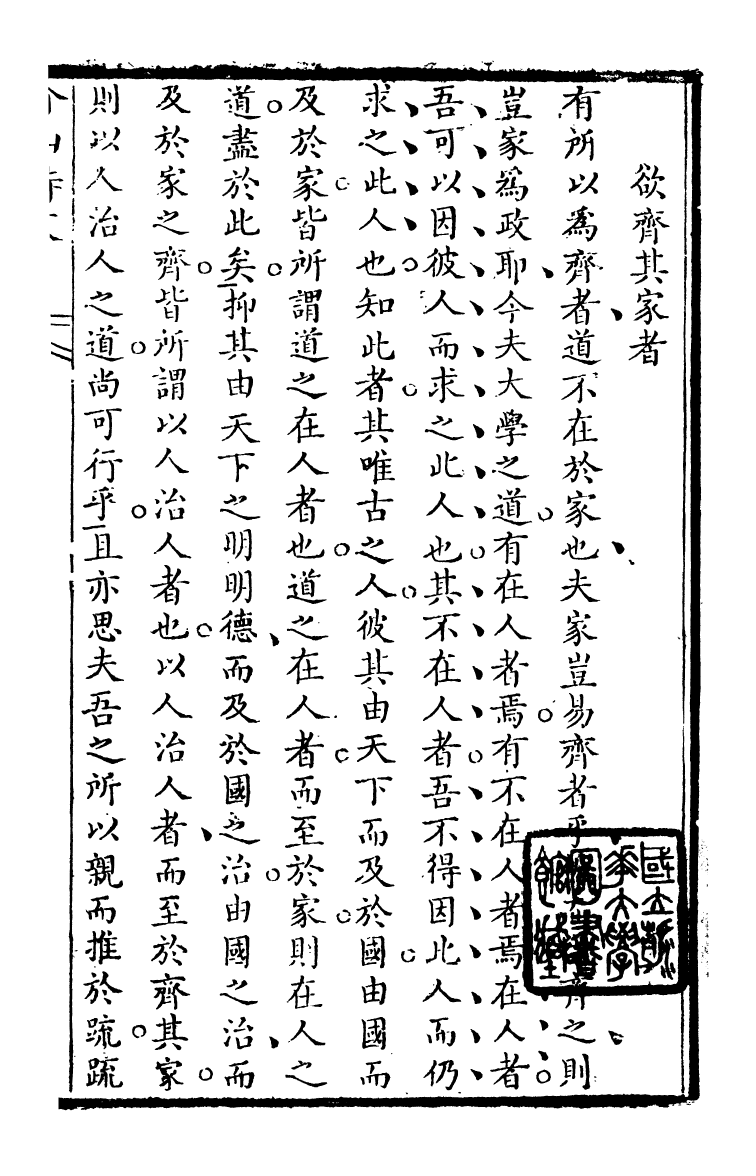 欲齊其家者
有所以爲齊者道不在於家也夫家豈易齊者乎齊之則
豈家爲政耶今夫大學之道有在人者焉有不在人者焉在人者
吾可以因彼人而求之此人也其不在人者吾不得因此人而仍
求之此人也知此者其唯古之人彼其由天下而及於國由國而
及於家皆所謂道之在人者也道之在人者而至於家則在人之
道盡於此矣抑其由天下之明明德而及於國之治由國之治而
及於家之齊皆所謂以人治人者也以人治人者而至於齊其家
則以人治人之道尚可行乎且亦思夫吾之所以親而推於疏疏